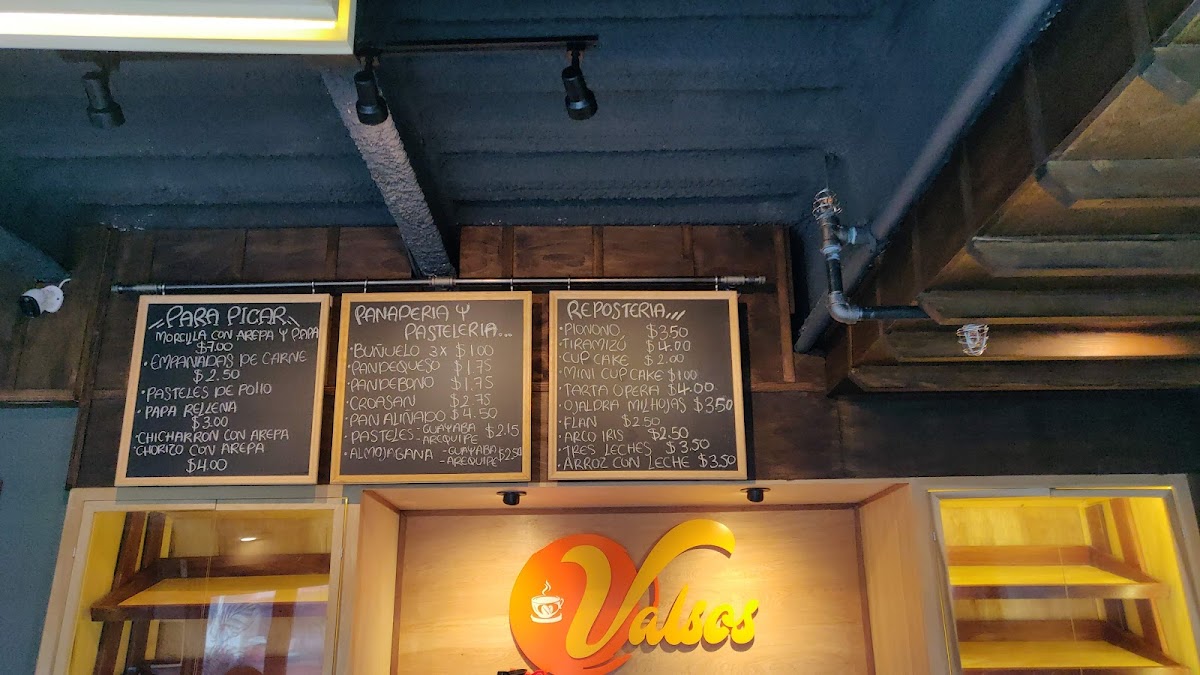 PARA PICAR
MORCILLA CON AREPA Y PAPA
$7.00
• EMPANADAS DE CARNE
$2.50
• PASTELES DE POLLO
• PAPA RELLENA
$3.00
• CHICHARRON CON AREPA
• CHORIZO CON AREPA
$4.00
PANADERIA Y
PASTELERIA...
• BUÑUELO 3x $1.00
• PANDEQUESO $1.75
• PANDEBONO $1.75
• CROASAN $2.75
• PAN ALIÑADO $4.50
• PASTELES - GUAYABA $2.15
- AREQUIPE
• ALMOJAGANA - GUAYABA $2.50
- AREQUIPE
REPOSTERIA,,,
• PIONONO $3.50
• TIRAMIZÚ $4.00
• CUP CAKE $2.00
• MINI CUP CAKE $1.00
• TARTA OPERA $4.00
• OJALDRA MILHOJAS $3.50
• FLAN $2.50
• ARCO IRIS $2.50
• TRES LECHES $3.50
• ARROZ CON LECHE $3.50
Valsos